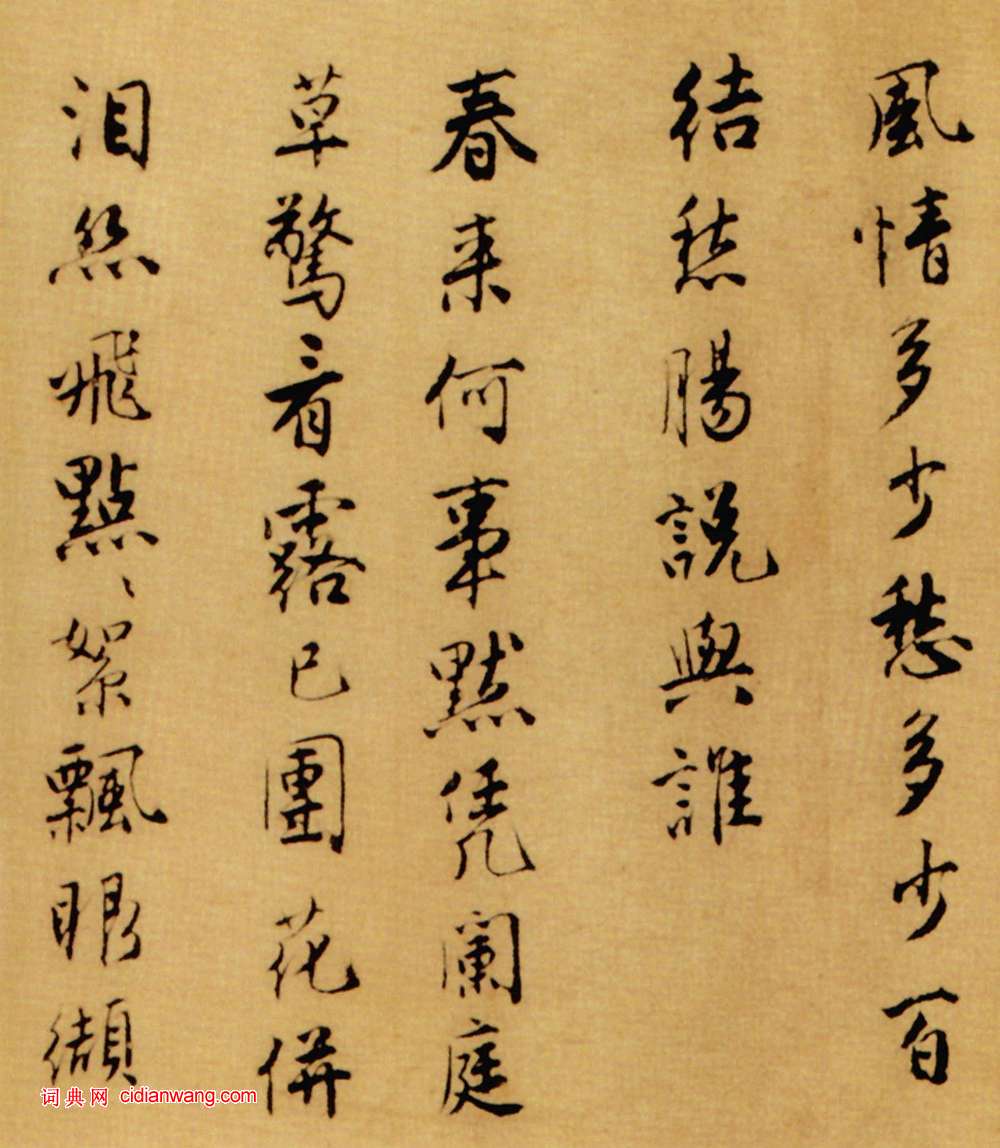 風情多少愁多少百
結愁腸說與誰
春來何事默凭闌庭
草驚看露已團花併
淚然飛點點絮飄眼纈
词典网 cidianwang.com